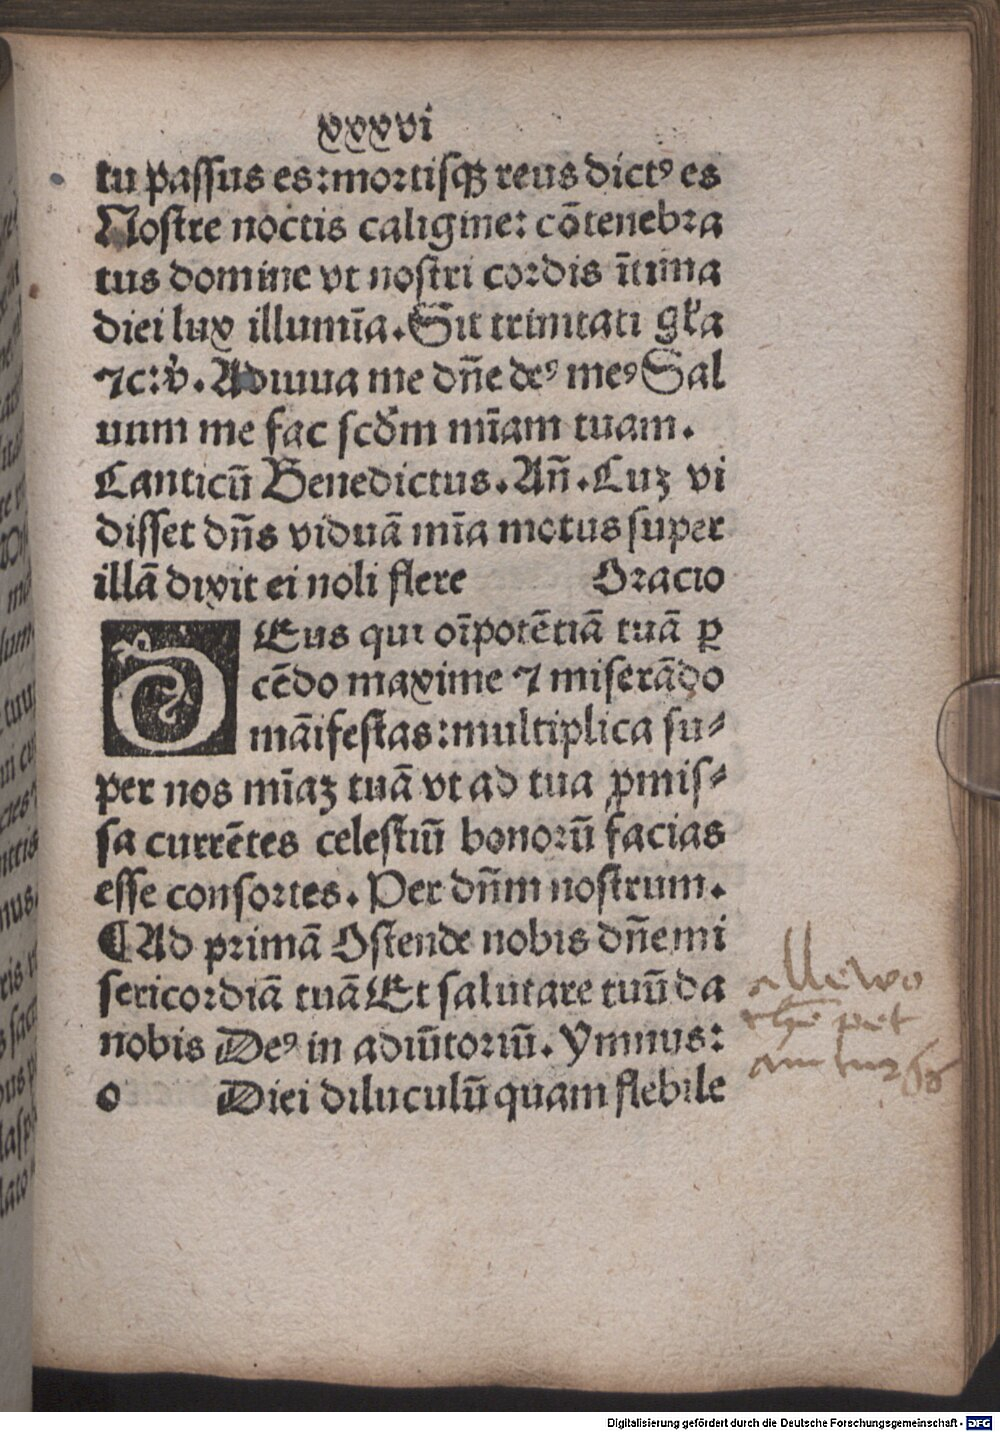 xxxvi
tu passus es: mortisqꝫ reus dictꝰ es
Nostre noctis caligine: cōtenebra
tus domine vt nostri cordis ītima
diei lux illumīa. Sit trinitati gľa
⁊c: v̉. Adiuua me dn̄e deꝰ meꝰ Sal
uum me fac scd̓m mīam tuam.
Canticū Benedictus. An̄. Cuꝫ vi
disset dn̄s viduā mīa motus super
illā dixit ei noli flere Oracio
DEus qui oīpotētiā tuā ꝑ
cēdo maxime ⁊ miserādo
māifestas: multiplica su⸗
per nos mīaꝫ tuā vt ad tua ꝓmis⸗
sa currētes celestiū bonorū facias
esse consortes. Per dn̄m nostrum.
¶ Ad primā Ostende nobis dn̄e mi
sericordiā tuā Et salutare tuū da
nobis Deꝰ in adiūtoriū. Ymnus:
o Diei diluculū quam flebile